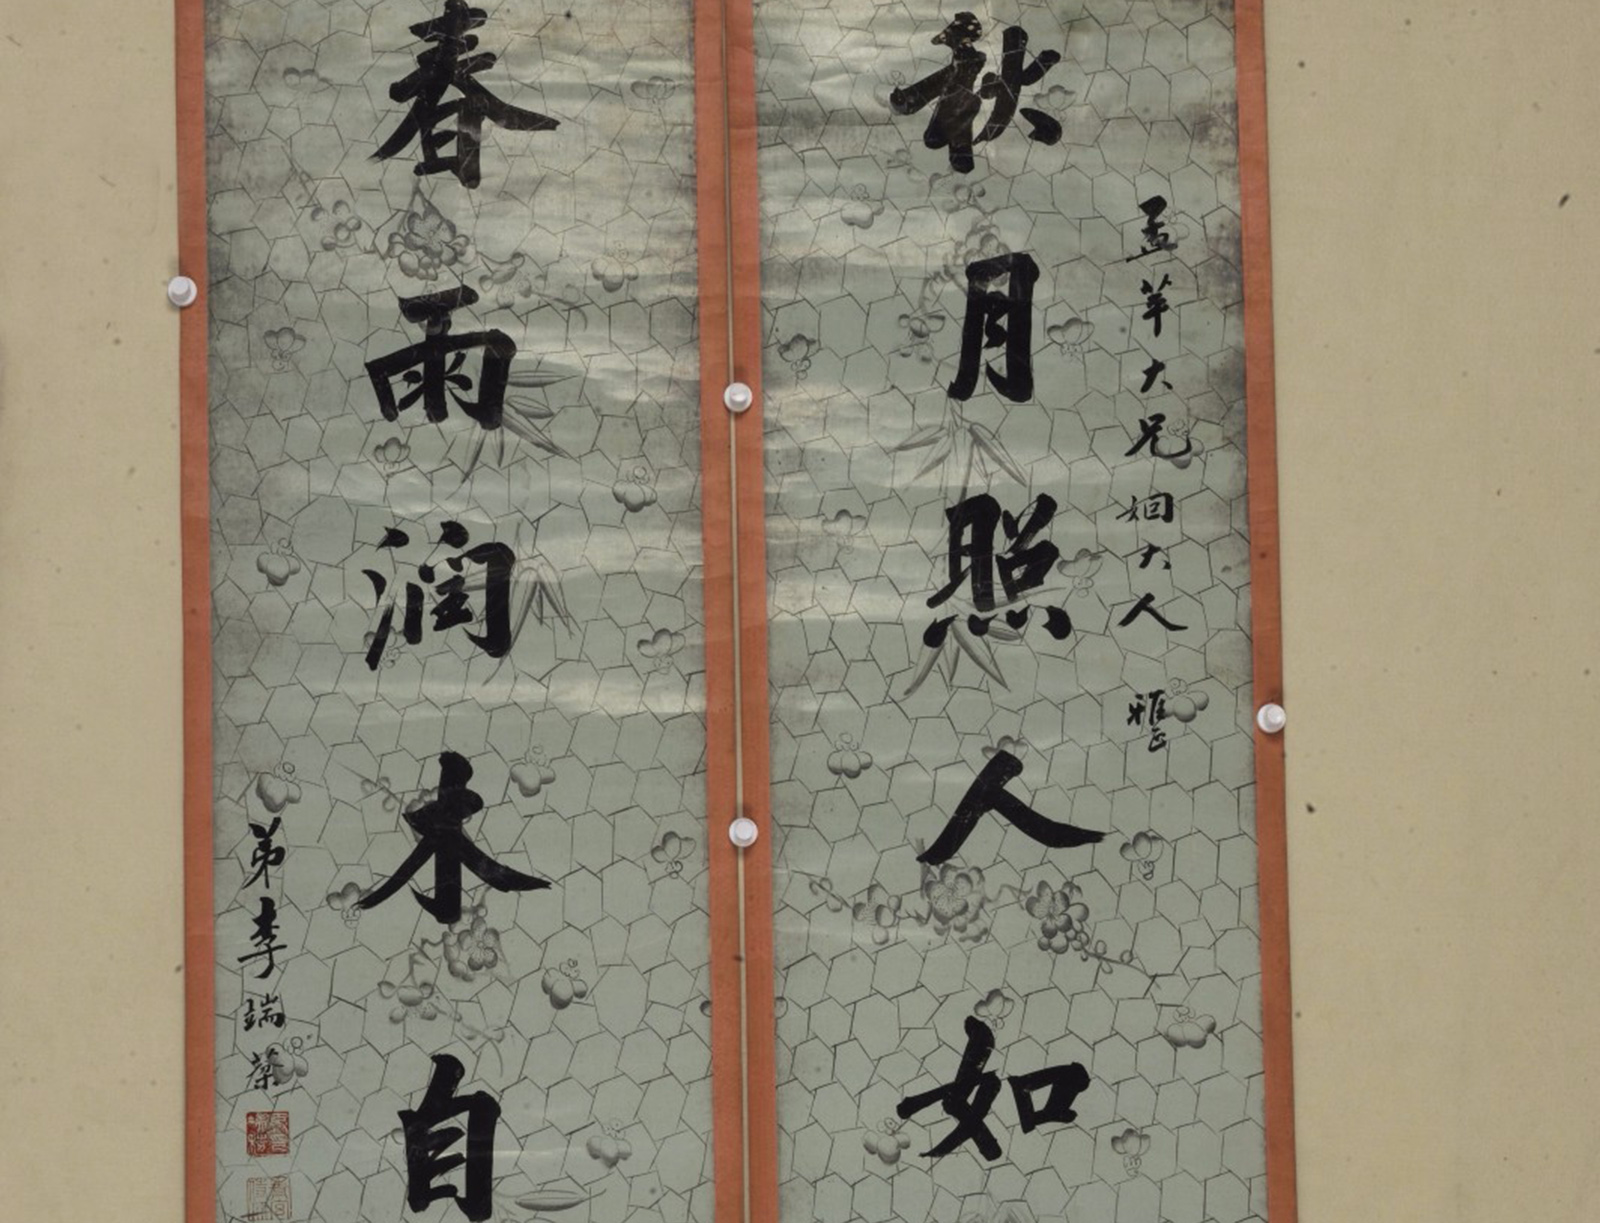 孟苹大兄姻大人雅正
秋月照人如
春雨润木自
弟李端棻